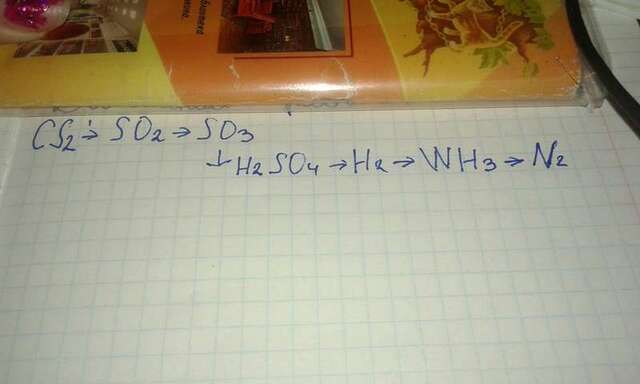 CS2 → SO2 → SO3
↓ H2SO4 → H2 → WH3 → N2